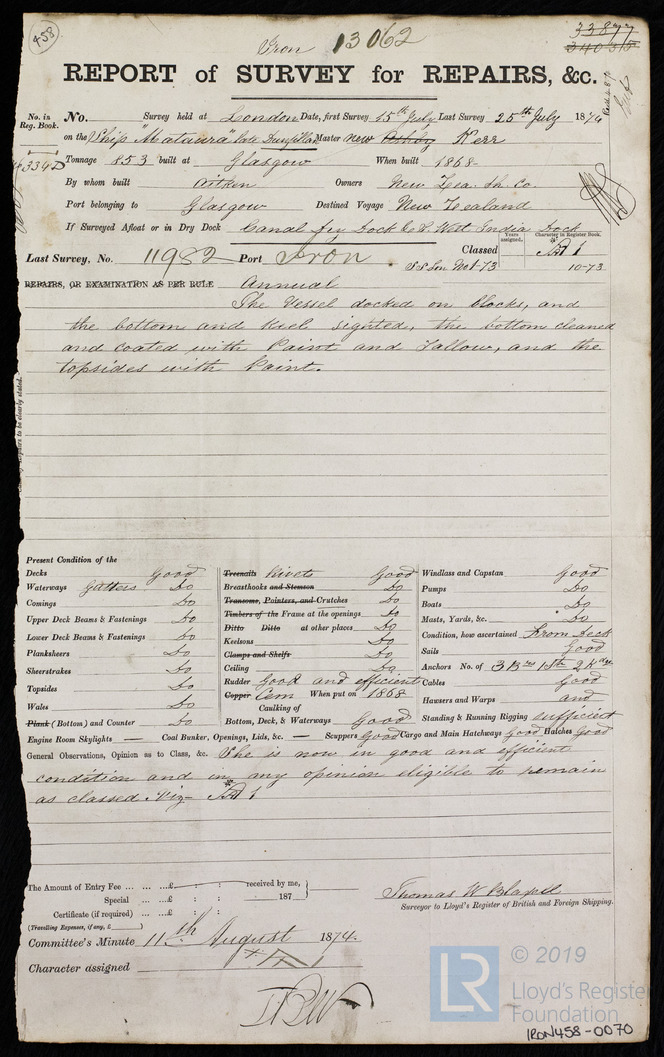 458
Iron 13062
33877
340315
REPORT of SURVEY for REPAIRS, &c.
No. in Reg. Book.
No. Survey held at London Date, first Survey 15th July Last Survey 25th July 1874
on the Ship "Mataura" late Dunfillan Master new Kerr
334
Tonnage 853 built at Glasgow When built 1868
By whom built Aitken Owners New Zea. Sh. Co.
Port belonging to Glasgow Destined Voyage New Zealand
If Surveyed Afloat or in Dry Dock Canal Dry Dock & West India Dock
Years assigned. Character in Register Book.
Last Survey, No. 11982 Port Iron Classed A 1
SS Lon No1-73 10-73
REPAIRS, OR EXAMINATION AS PER RULE Annual
The Vessel docked on blocks, and
the bottom and Keel sighted, the bottom cleaned
and coated with Paint and Tallow, and the
topsides with Paint.
Repairs to be clearly stated.
Present Condition of the
Decks Good
Waterways Gutters Do
Comings Do
Upper Deck Beams & Fastenings Do
Lower Deck Beams & Fastenings Do
Planksheers Do
Sheerstrakes Do
Topsides Do
Wales Do
Plank (Bottom) and Counter Do
Treenails Rivets Good
Breasthooks and Stemson Do
Transoms, Pointers, and Crutches Do
Timbers of the Frame at the openings Do
Ditto Ditto at other places Do
Keelsons Do
Clamps and Shelfs Do
Ceiling Do
Rudder Good and efficient
Copper Cem When put on 1868
Caulking of
Bottom, Deck, & Waterways Good
Windlass and Capstan Good
Pumps Do
Boats Do
Masts, Yards, &c. Do
Condition, how ascertained From deck
Sails Good
Anchors No. of 3 Brs 1 St 2 Kgs
Cables Good
Hawsers and Warps and
Standing & Running Rigging sufficient
Engine Room Skylights — Coal Bunker, Openings, Lids, &c. — Scuppers Good Cargo and Main Hatchways Good Hatches Good
General Observations, Opinion as to Class, &c. She is now in good and efficient
condition and in my opinion eligible to remain
as classed Viz A 1
The Amount of Entry Fee ... ... £ : : received by me,
Special ... £ : : 187
Certificate (if required) ... £ : :
(Travelling Expenses, if any, £ )
Thomas W Blagell
Surveyor to Lloyd's Register of British and Foreign Shipping.
Committee's Minute 11th August 1874.
Character assigned
© 2019
LR
Lloyd's Register
Foundation
IRON458-0070